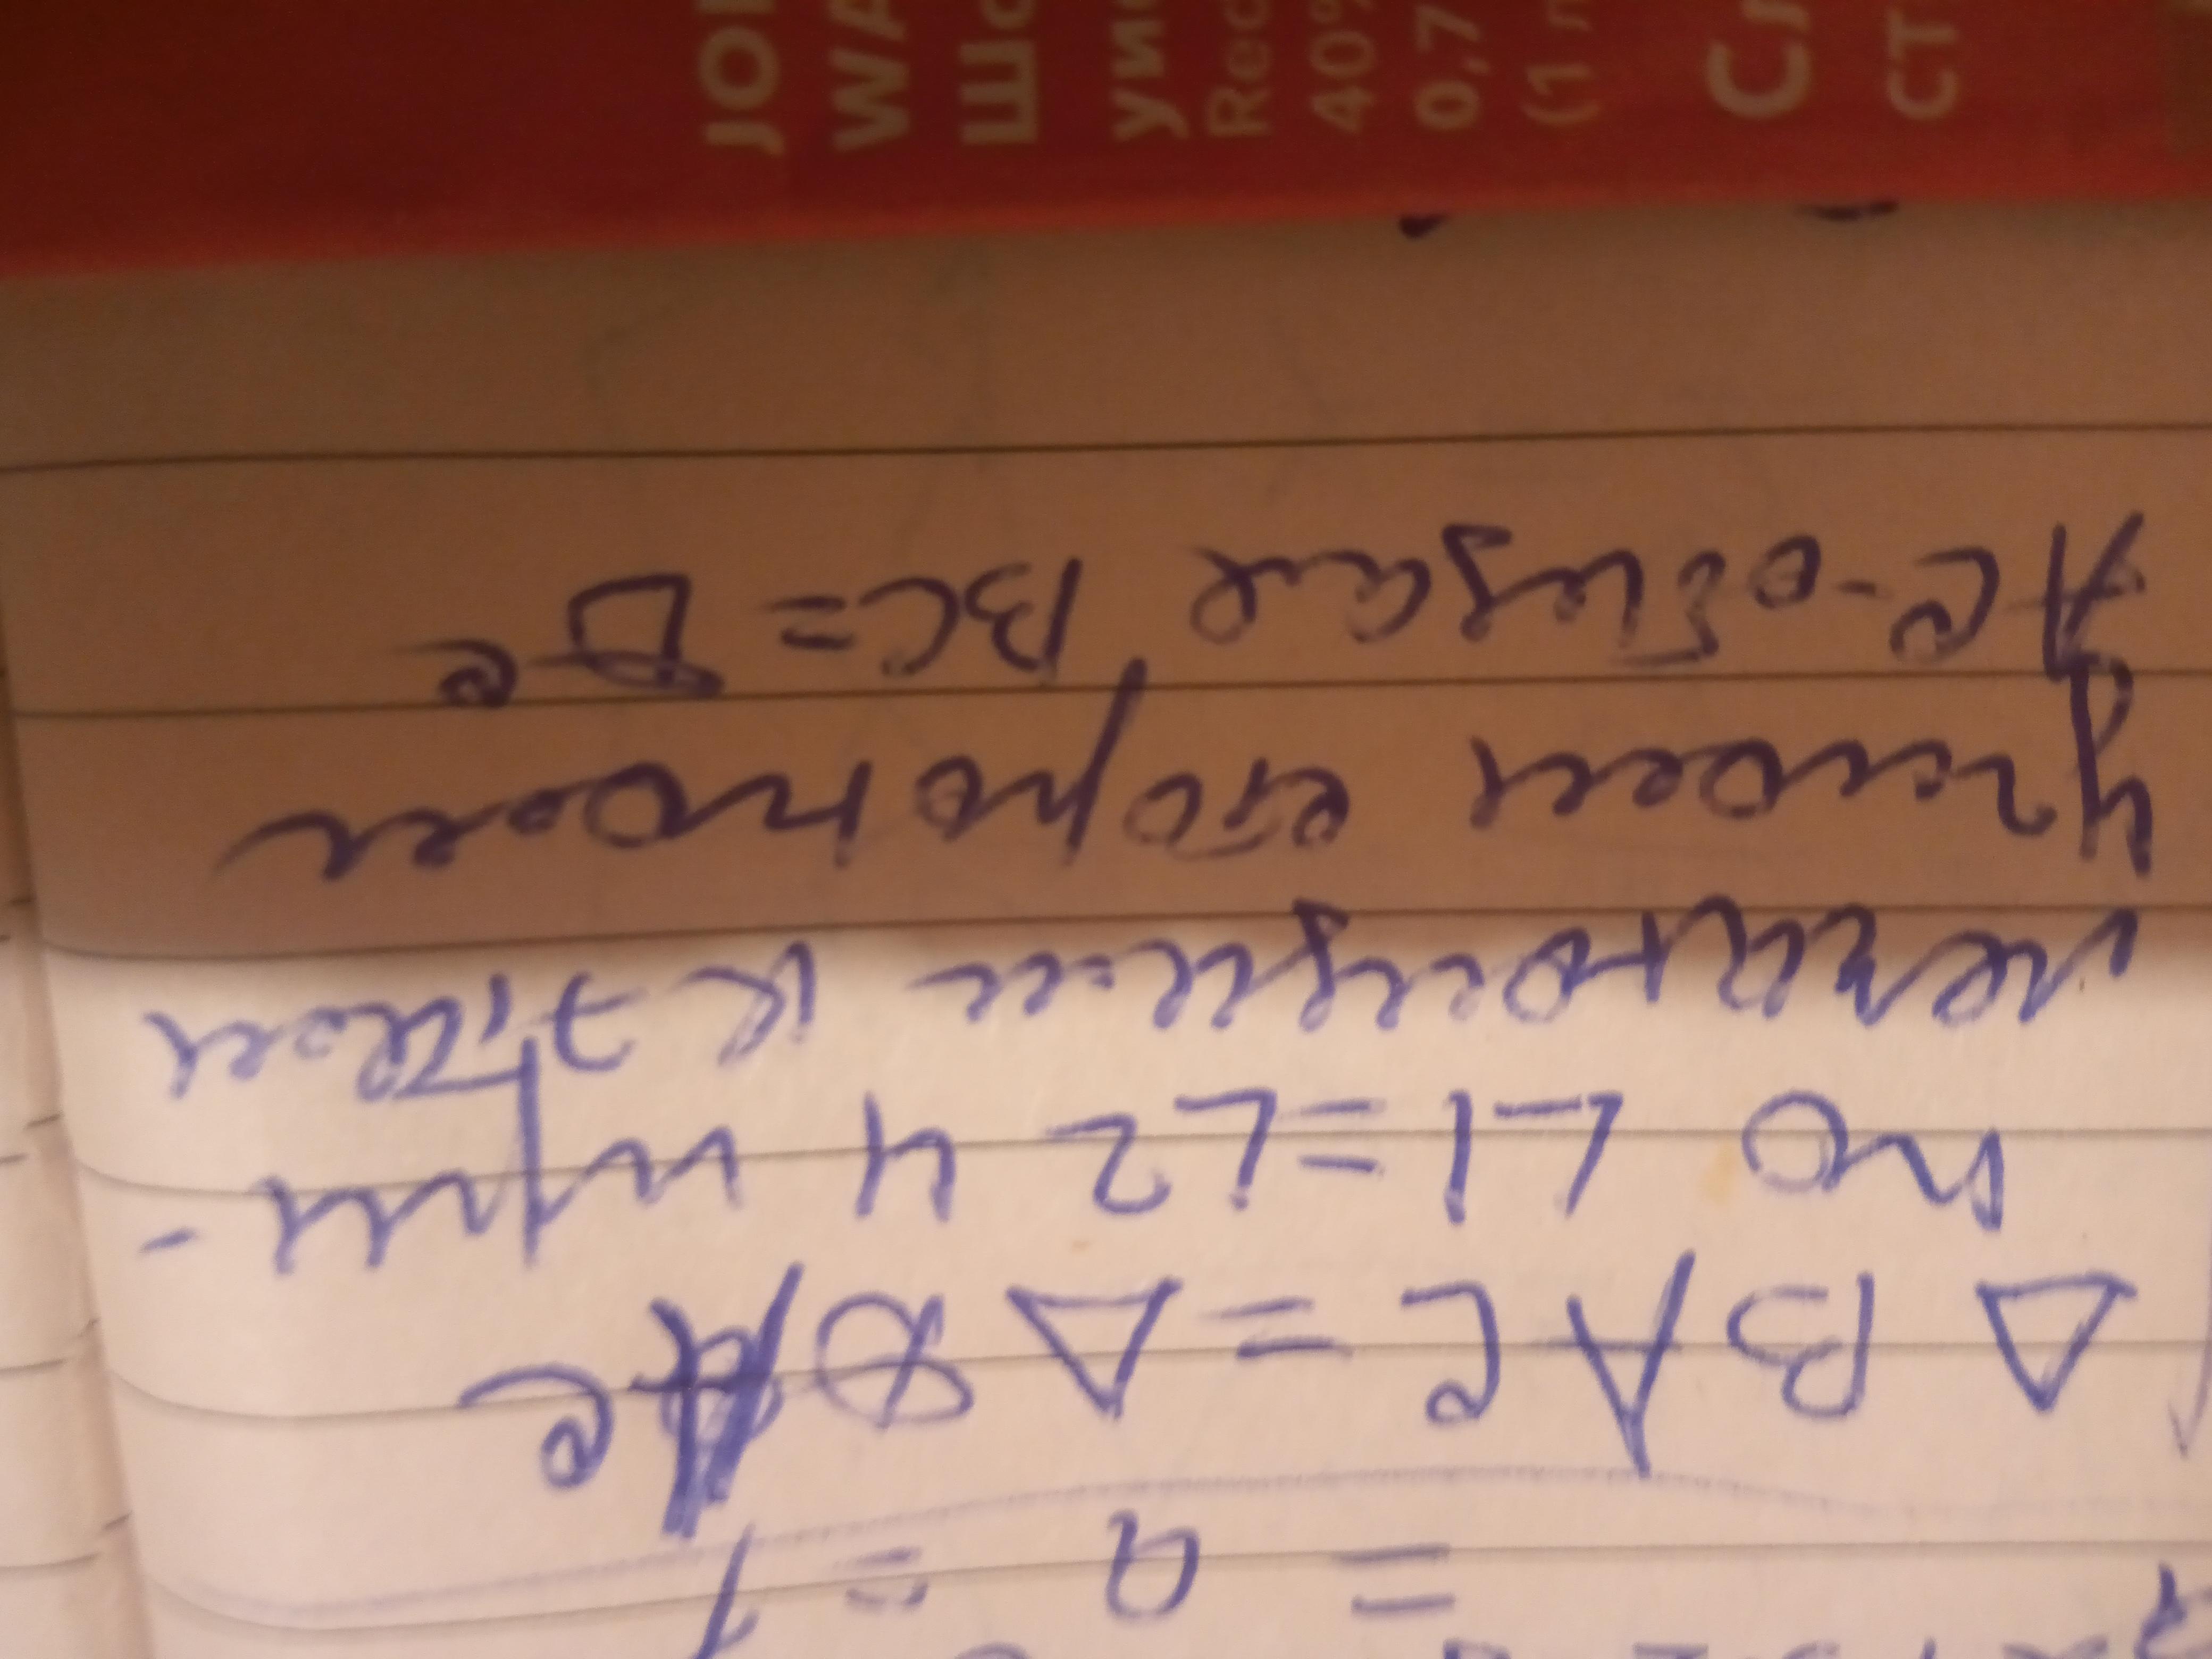 = a = 1
△ BAC = △ DAC
по ∠1=∠2 и при-
лежащим к этим
углам сторонам
AC-общая BC= DC
JO
WA
Шо
уис
Rec
40%
0,7
(1 л
СТ